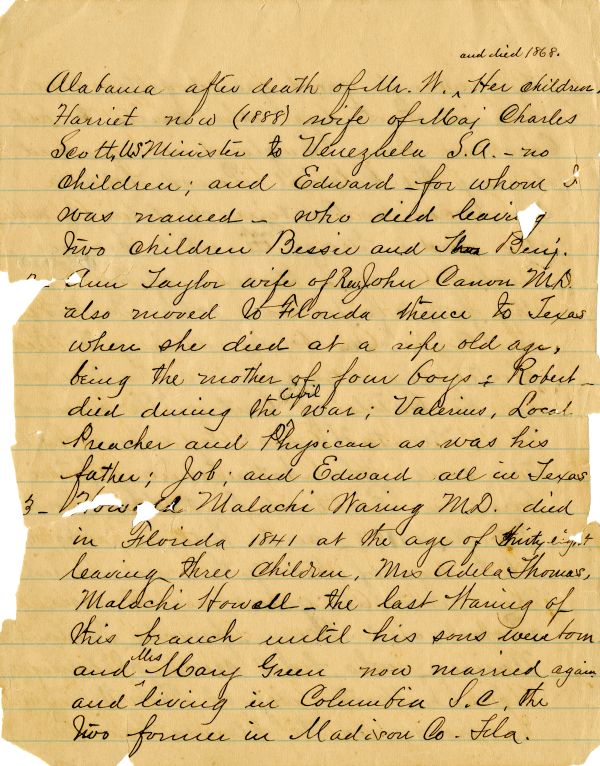 and died 1868.
Alabama after death of Mr. W. ^ Her children,
Harriet now (1888) wife of Maj Charles
Scott, US Minister to Venezuela S.A. – no
children; and Edward – for whom I
was named – who died leaving
two children Bessie and Benj.
Ann Taylor wife of Rev John Canon M.D.
also moved to Florida thence to Texas
where she died at a ripe old age,
being the mother of four boys: Robert –
died during the Civil war; Valerius, Local
Preacher and Physican as was his
father; Job; and Edward all in Texas
3 – Malachi Waring M.D. died
in Florida 1841 at the age of thirty eight
leaving three children, Mrs Adela Thomas,
Malachi Howell – the last Waring of
this branch until his sons were born
and Mrs ^ Mary Green now married again
and living in Columbia S.C. the
two former in Madison Co. Fla.